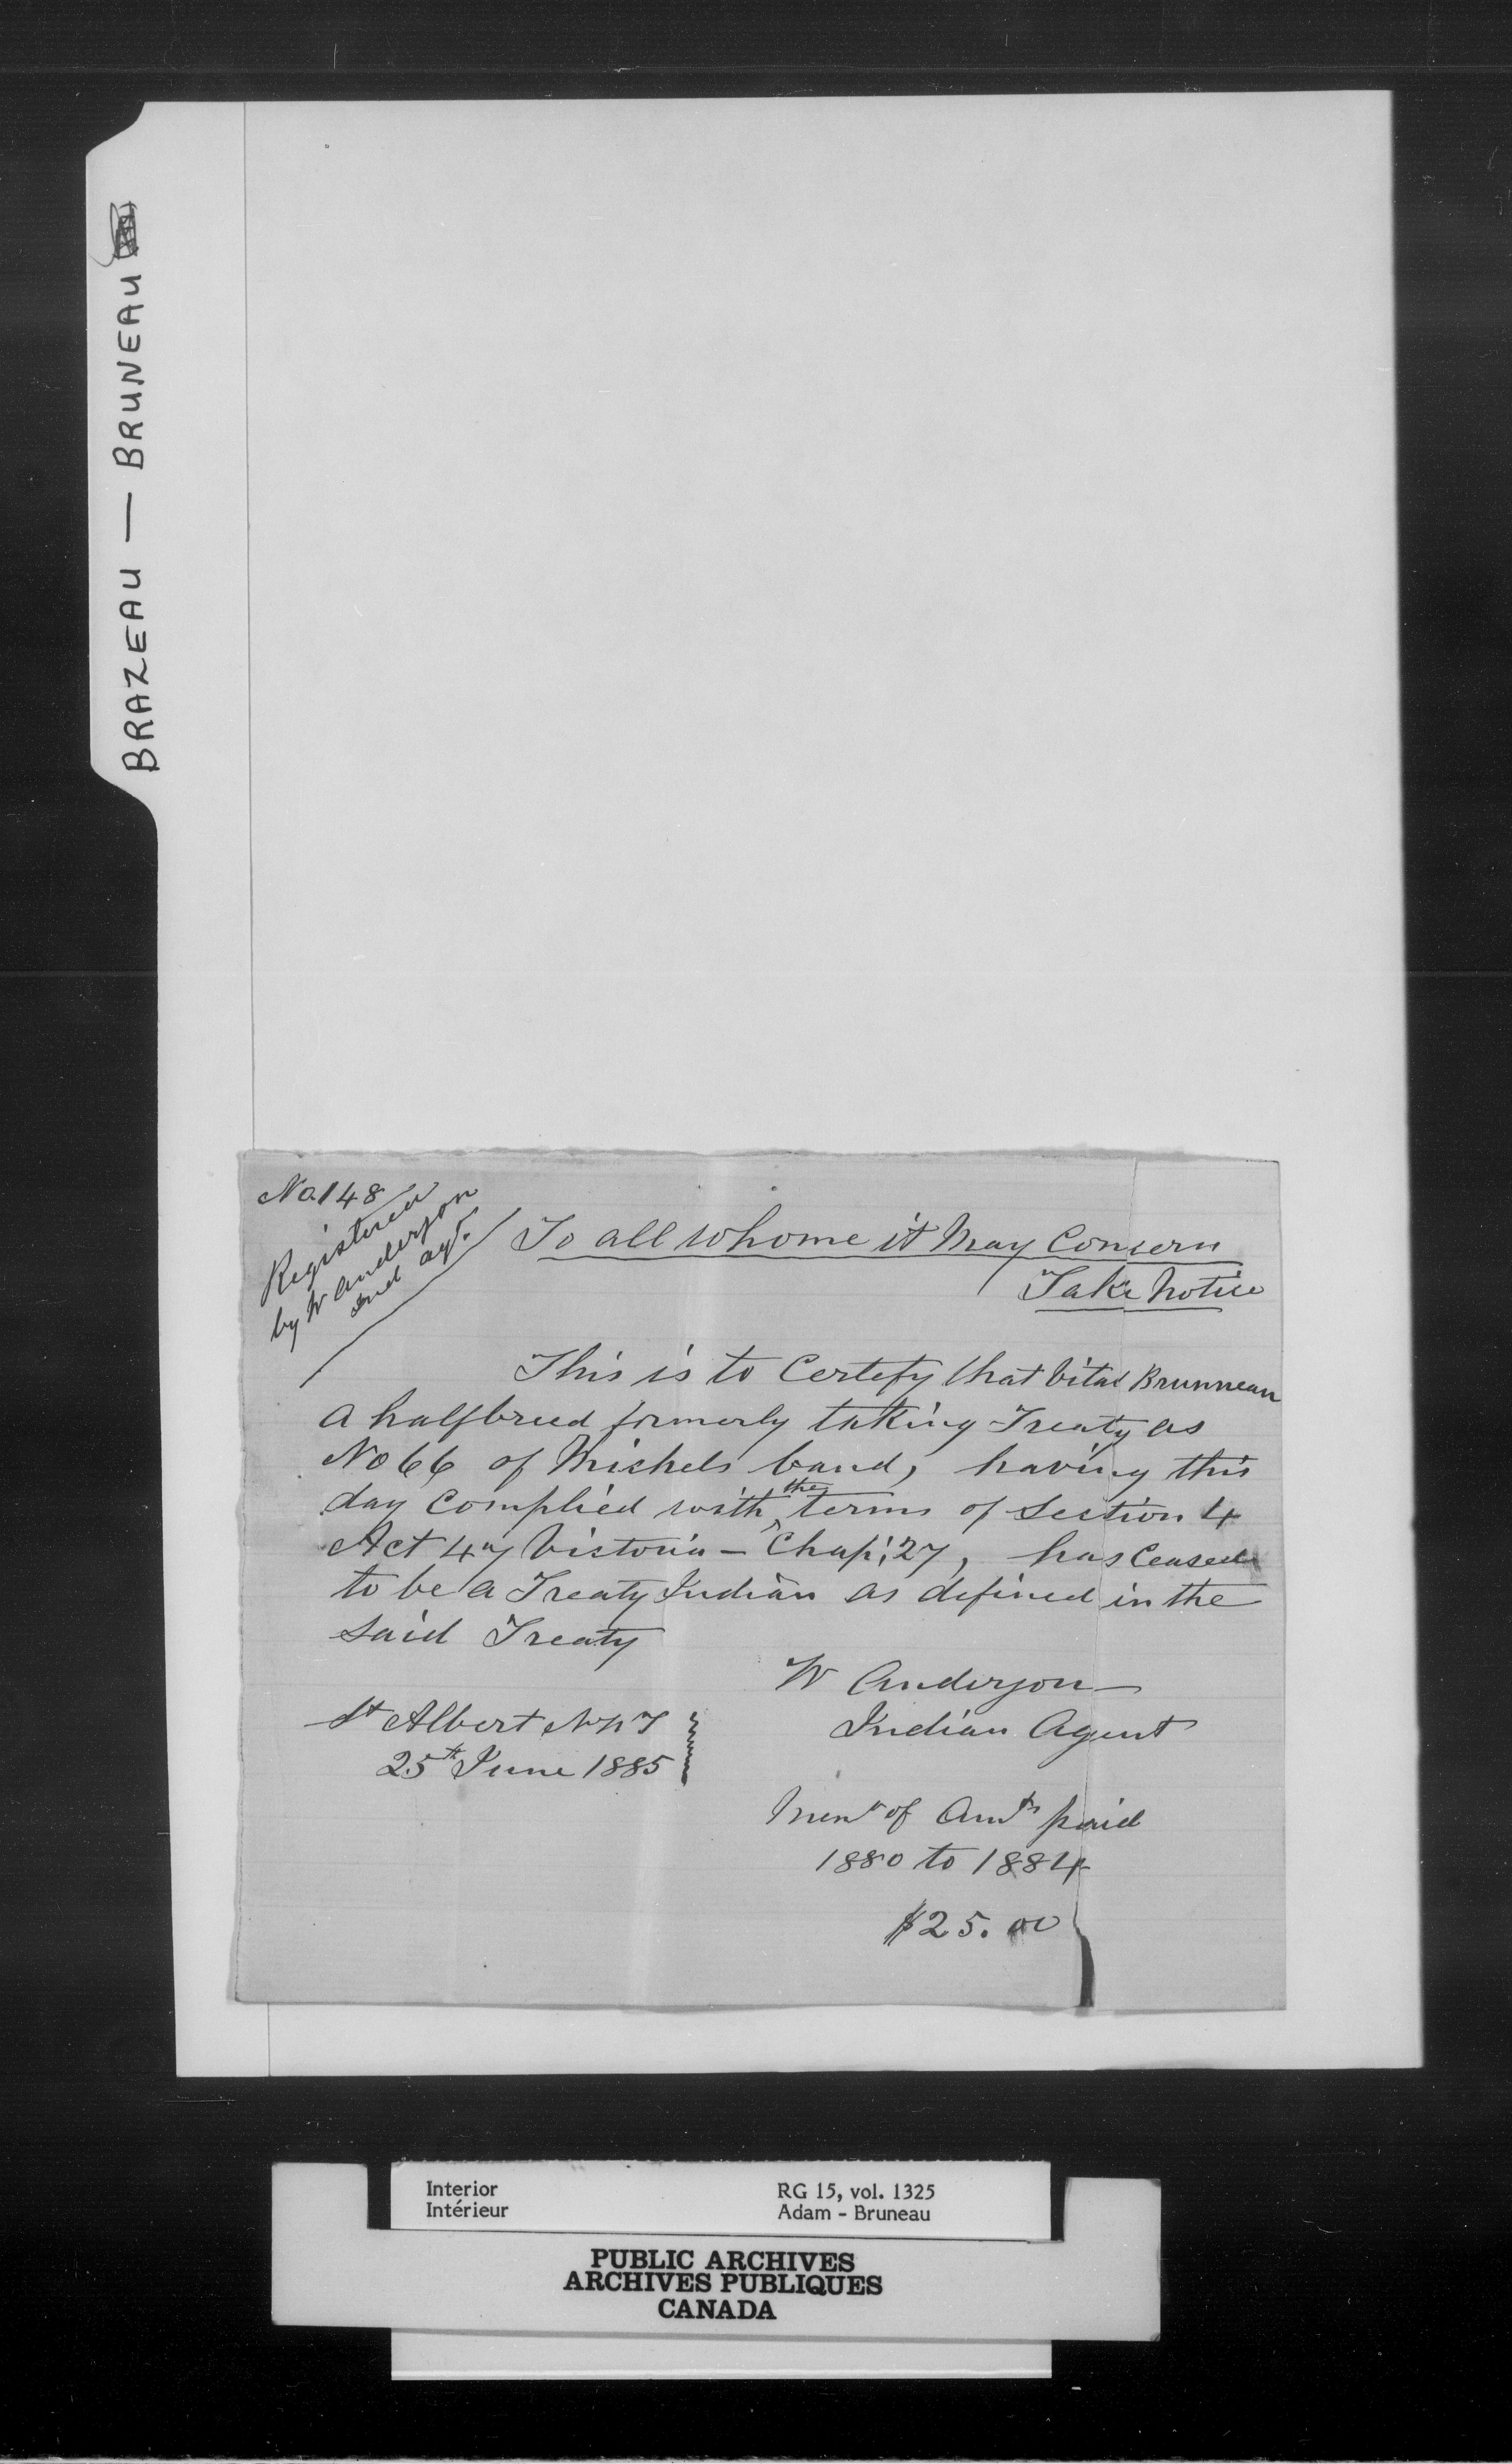 BRAZEAU — BRUNEAU
No 148
Registered
by W Anderson
Ind Agt.
To all whome it May Concern
Take Notice
This is to Certefy that Vital Brunneau
a halfbreed formerly taking Treaty as
No 66 of Michels band, having this
day Complied with the terms of Section 4
Act 47 Victoria - Chap; 27, has Ceased
to be a Treaty Indian as defined in the
said Treaty
W Anderson
Indian Agent
St Albert NWT
25th June 1885
of Amts paid
1880 to 1884
$25.00
Interior RG 15, vol. 1325
Intérieur Adam - Bruneau
PUBLIC ARCHIVES
ARCHIVES PUBLIQUES
CANADA